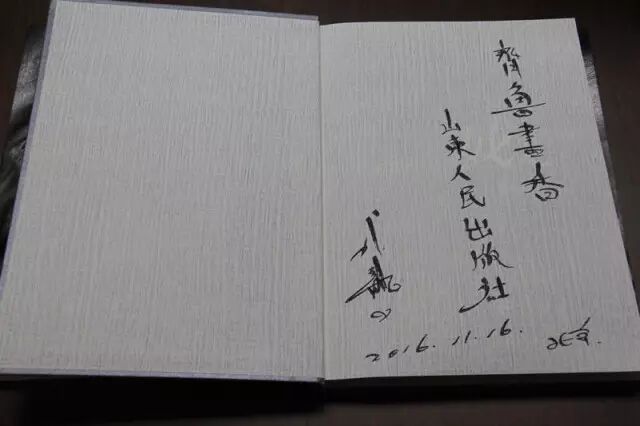 齊魯書香
山東人民出版社
2016.11.16.
北京